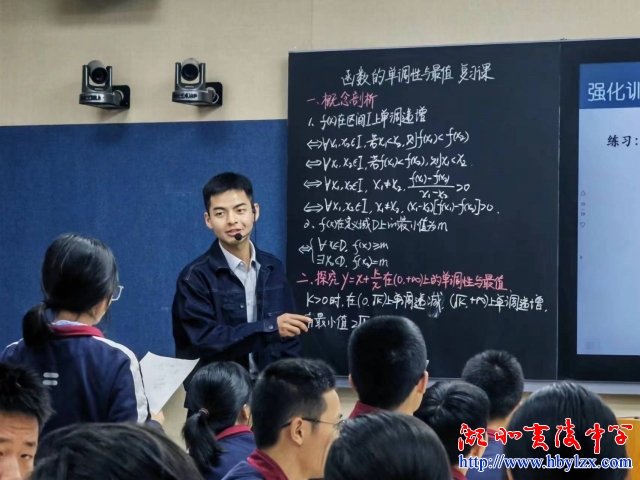 函数的单调性与最值 复习课
一、概念剖析
1. f(x)在区间I上单调递增
⇔∀x₁,x₂∈I, 若x₁<x₂, 则f(x₁)<f(x₂)
⇔∀x₁,x₂∈I, 若f(x₁)<f(x₂), 则x₁<x₂.
⇔∀x₁,x₂∈I, x₁≠x₂, f(x₁)-f(x₂)/x₁-x₂>0
⇔∀x₁,x₂∈I, x₁≠x₂, (x₁-x₂)[f(x₁)-f(x₂)]>0.
2. f(x)在定义域D上的最小值为m
⇔{∀x∈D, f(x)≥m
∃x₀∈D, f(x₀)=m
二、探究y=x+k/x在(0,+∞)上的单调性与最值.
k>0时,在(0,√k)上单调递减 (√k,+∞)上单调递增.
最小值2√k
强化训
练习:
湖北夷陵中学
http://www.hbylzx.com